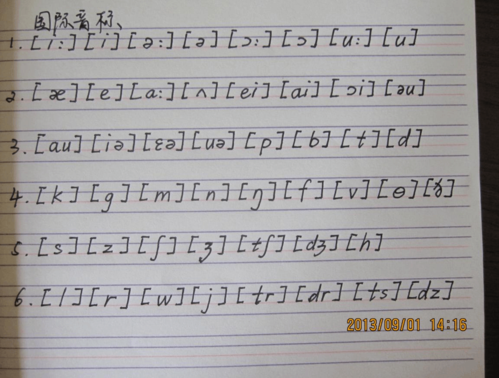 国际音标、
1. [i:] [i] [ə:] [ə] [ɔ:] [ɔ] [u:] [u]
2. [æ] [e] [a:] [ʌ] [ei] [ai] [ɔi] [əu]
3. [au] [iə] [εə] [uə] [p] [b] [t] [d]
4. [k] [g] [m] [n] [ŋ] [f] [v] [ɵ] [ð]
5. [s] [z] [ʃ] [ʒ] [tʃ] [dʒ] [h]
6. [l] [r] [w] [j] [tr] [dr] [ts] [dz]
2013/09/01 14:16